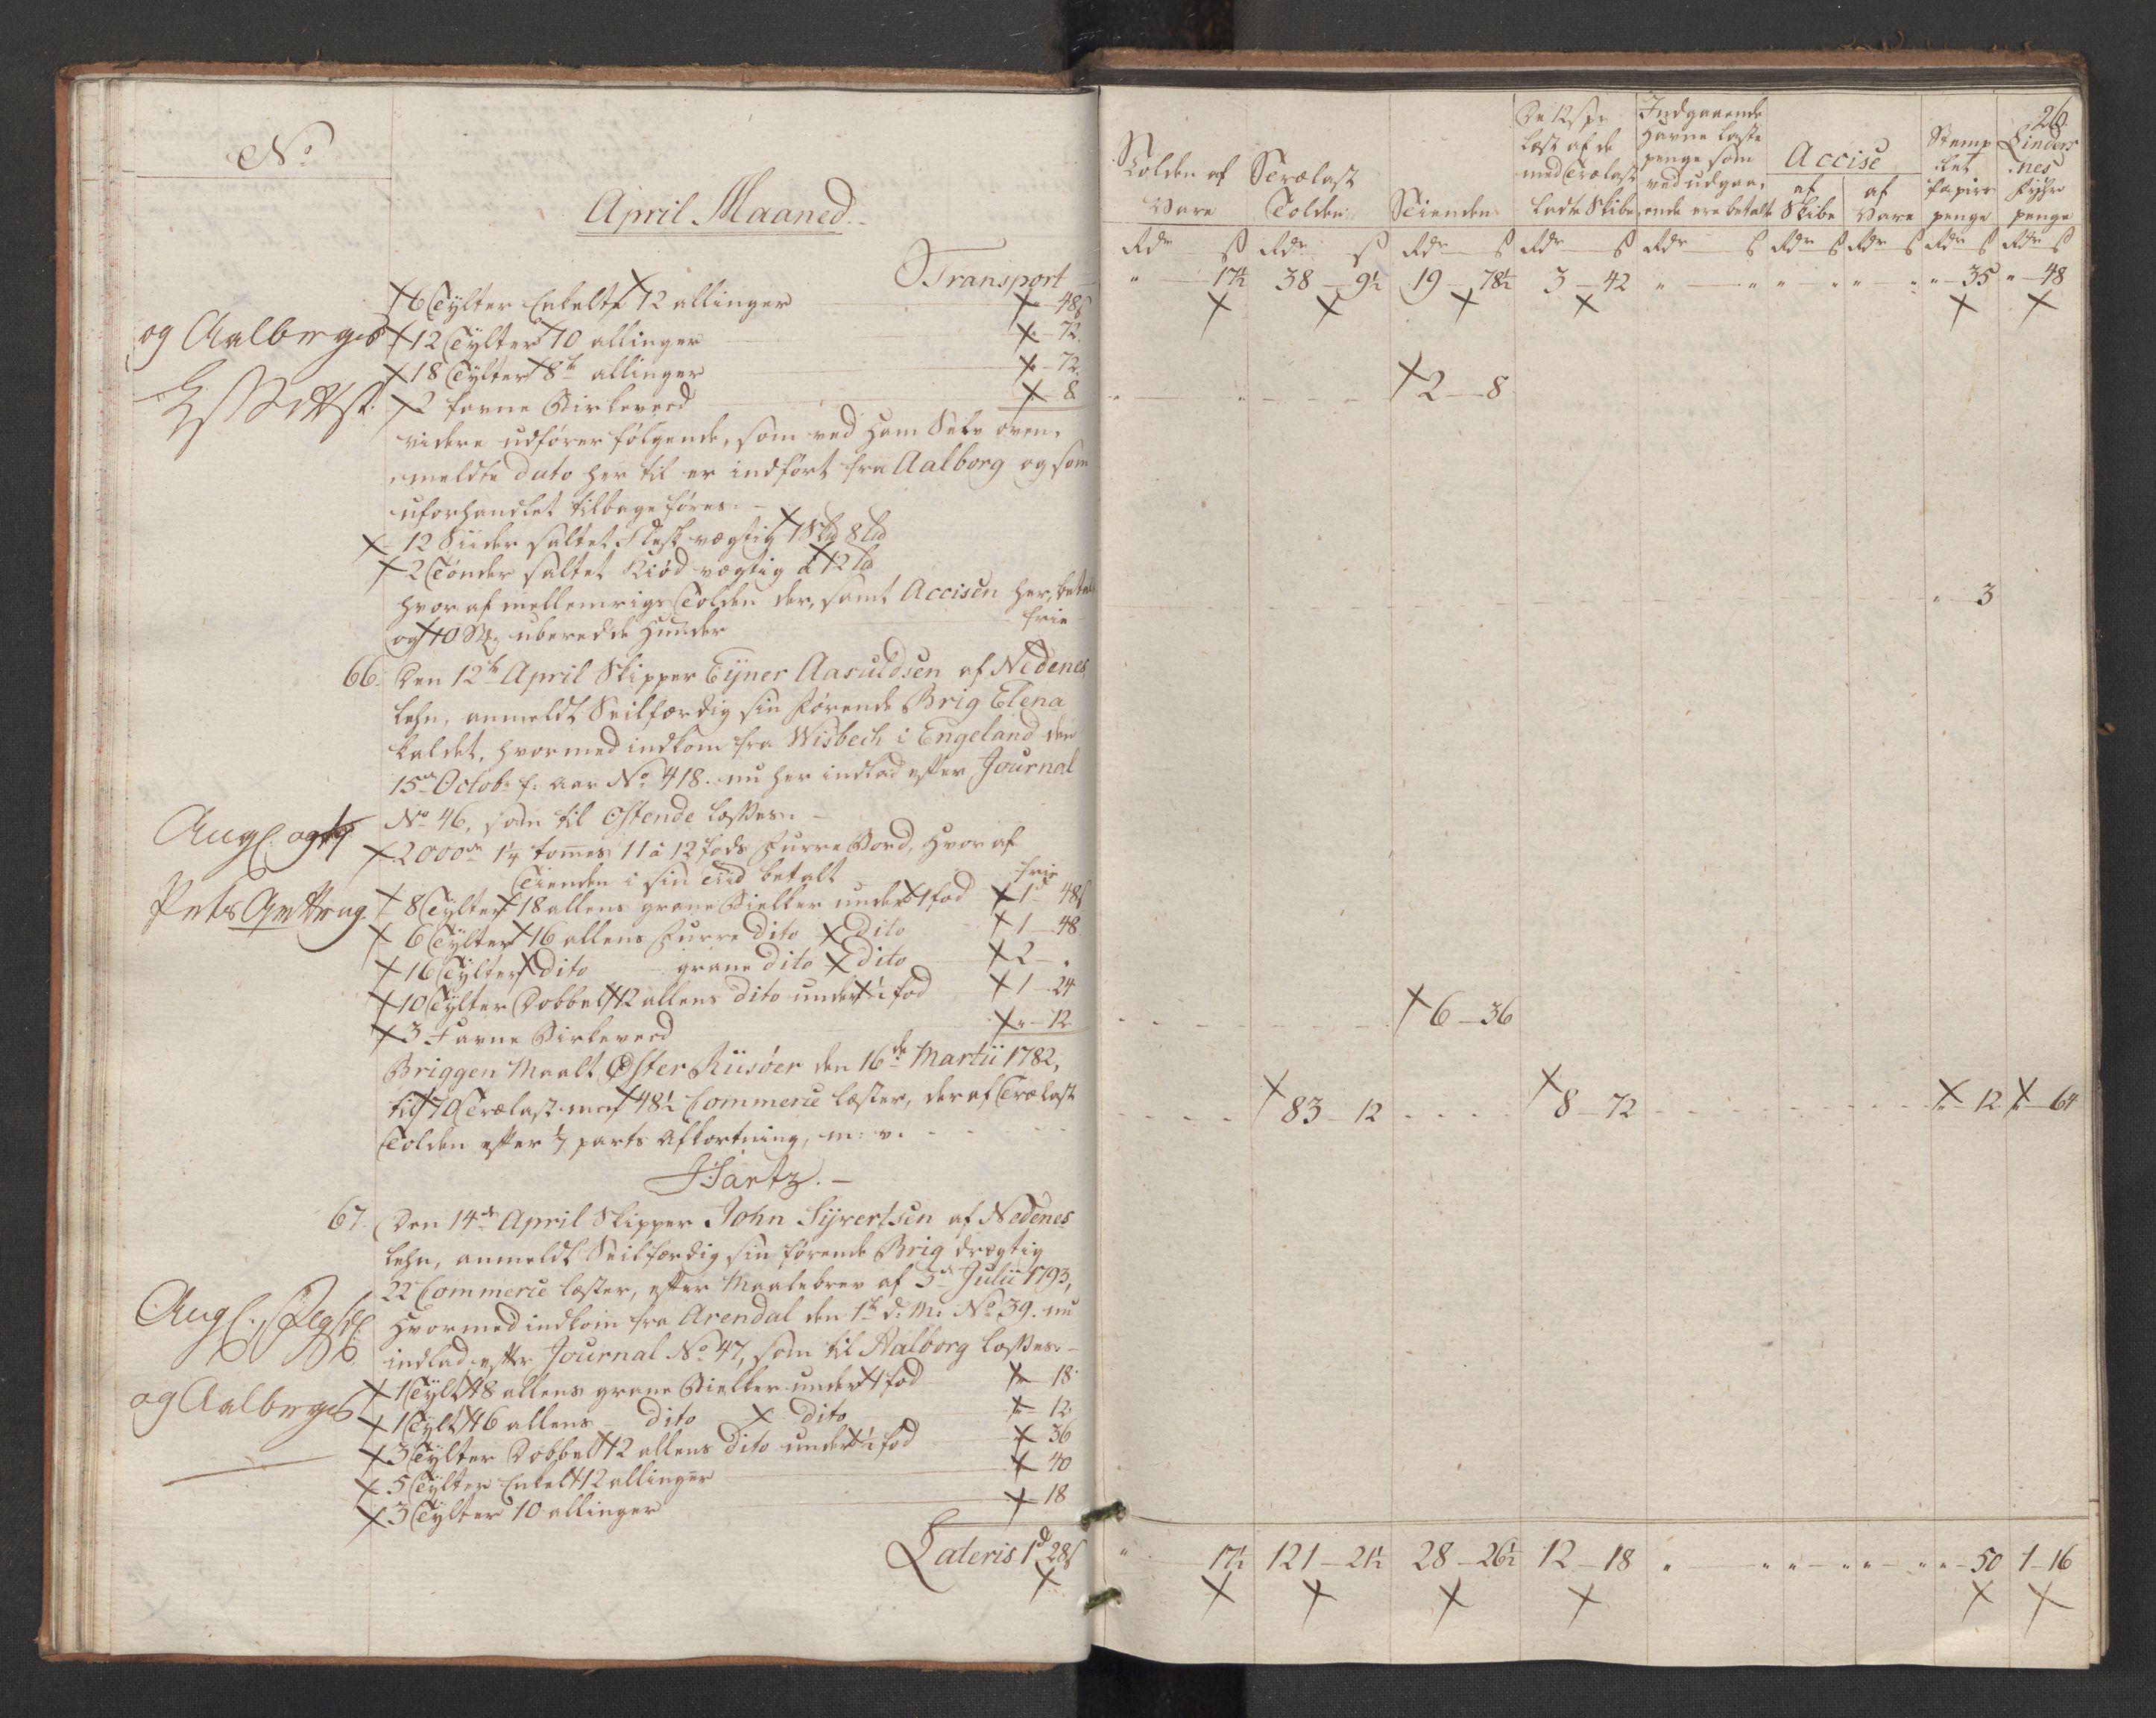 No
April Maaned.
Transport
6 Tylter Enkelte 12 allinger - 48s
og Aalborgs 12 Tylter 10 allinger - 72.
18 Tylter 8te allinger - 72.
2 favne Birkeved - 8
videre udfører følgende, som ved ham Selv oven,
meldte dato her til er indført fra Aalborg og som
uforhandlet tilbageføres.
12 Siider saltet Flesk vægtig 1 8
2 Tønder saltet Kiød vægtig a 12
hvoraf mellemrigs Tolden der, samt Accisen her, betalt
og 10 uberedde Huuder frie
66. Den 12te April Skipper Eyner Aasuldsen af Nedenes
Lehn, anmeldt Seilfærdig sin førende Brig Elena
kaldet, hvormed indkom fra Wisbech i Engeland den
15de Octobr f: aar No 418. nu her indlad efter Journal
No 46, som til Ostende losses.
2000de 1¼ tommes 11 a 12 fods Furre Bord, hvoraf
Tienden i sin tiid betalt frie
8 Tylter 18 allens grane Bielker under 1 fod 1d 48s
6 Tylter 16 allens Furre dito dito 1 - 48.
16 Tylter dito grane dito dito 2 - "
10 Tylter Dobbelt 12 allens dito under ½ fod 1 - 24
3 Favne Birkeved " - 12
Briggen Maalt Øster Riisøer den 16de Martii 1782,
til 70 Trælast men 48½ Commerce læster, deraf Trælast
Tolden efter 1/7 parts Afkortning, m: v.
Hartz.
67. Den 14de April Skipper John Syvertsen af Nedenes
Lehn, anmeldt Seilfærdig sin førende Brig drægtig
22 Commerce læster, efter Maalebrev af 3de Julii 1793,
hvormed indkom fra Arendal den 1te d: M: No 39. nu
indlad efter Journal No 47, som til Aalborg losses.
1 Tylt 18 allens grane Bielker under 1 fod - 18
og Aalborgs 1 Tylt 16 allens dito dito - 12
3 Tylter Dobbelt 12 allens dito under ½ fod - 36
5 Tylter Enkelt 12 allinger - 40
3 Tylter 10 allinger - 18
Lateris 1d 28s
26.
Tolden af Vare
Trælast Tolden
Tienden
De 12s pr
Læst af de
med Trælast
ladte Skibe
Indgaaende
Havne Laste
penge som
ved udgaa,
ende ere betalt
Accise
af Skibe
af Vare
Stemp
let
Papirs
penge
Linders
Nes
Fyhr
penge
Rdr s Rdr s Rdr s Rdr s Rdr s Rdr s Rdr s Rdr s Rdr s
" 17½ 38 - 9½ 19 - 78½ 3 - 42 " " " " " " - 35 " - 48
2 - 8
" 3
6 - 36
83 - 12 8 - 72 " - 12 " - 64
" 17½ 121 - 21½ 28 - 26½ 12 - 18 " " " " " " - 50 1 - 16